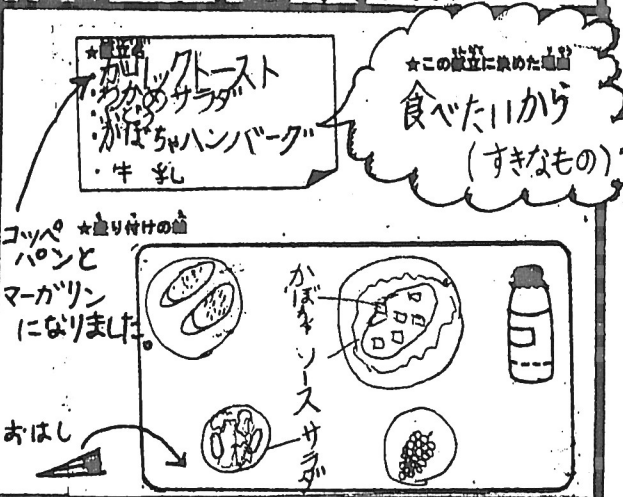 ★献立名
・ガーリックトースト
・わかめサラダ
・かぼちゃハンバーグ
・牛乳
★この献立に決めた理由
食べたいから
(すきなもの)
コッペ
パンと
マーガリン
になりました。
★盛り付けの図
かぼちゃ
ソース
サラダ
おはし